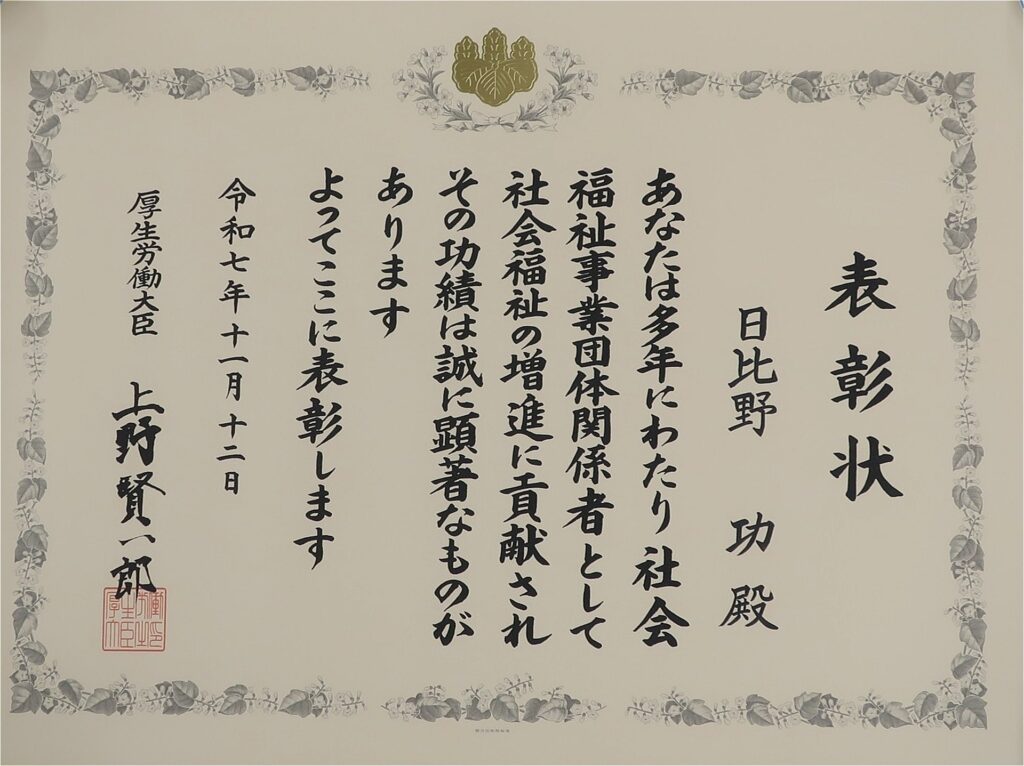 表彰状
日比野 功 殿
あなたは多年にわたり社会
福祉事業団体関係者として
社会福祉の増進に貢献され
その功績は誠に顕著なものが
あります
よってここに表彰します
令和七年十一月十二日
厚生労働大臣 上野賢一郎